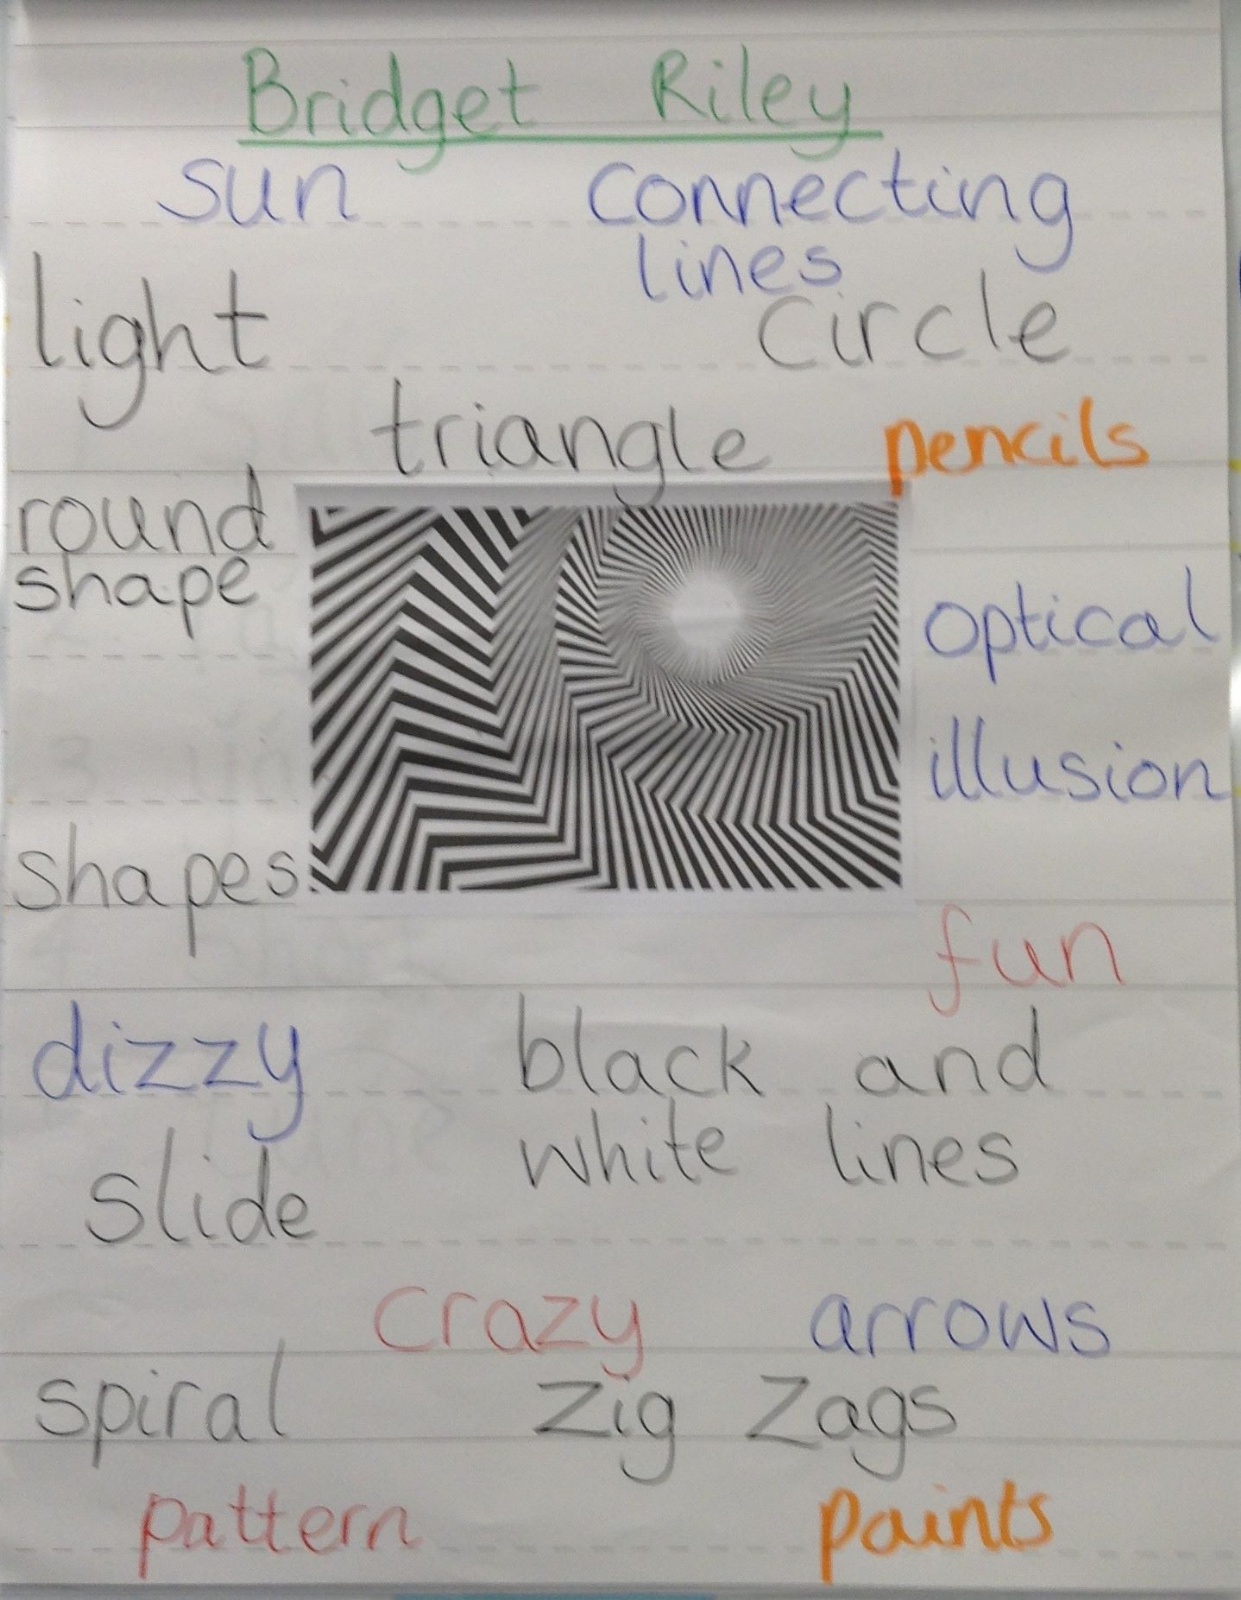 Bridget Riley
sun connecting
lines
light circle
triangle pencils
round
shape
optical
illusion
shapes
fun
dizzy black and
white lines
slide
crazy arrows
spiral zig zags
pattern paints